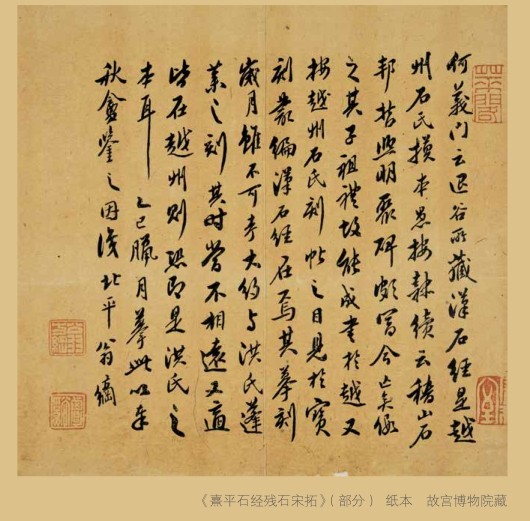 何義門云退谷所藏漢石經是越
州石氏摸本愚按隸續云稽山石
邦哲熙明裒碑頗富今亡矣假
之其子祖禮故能成書於越又
按越州石氏刻帖之目見於寶
刻叢編漢石經在焉其摹刻
歲月雖不可考大約与洪氏蓬
萊之刻其時當不相遠又適
皆在越州則恐即是洪氏之
本耳 乙巳臘月摹此以奉
秋盦鑒之因識 北平翁方綱
《熹平石经残石宋拓》(部分) 纸本 故宫博物院藏